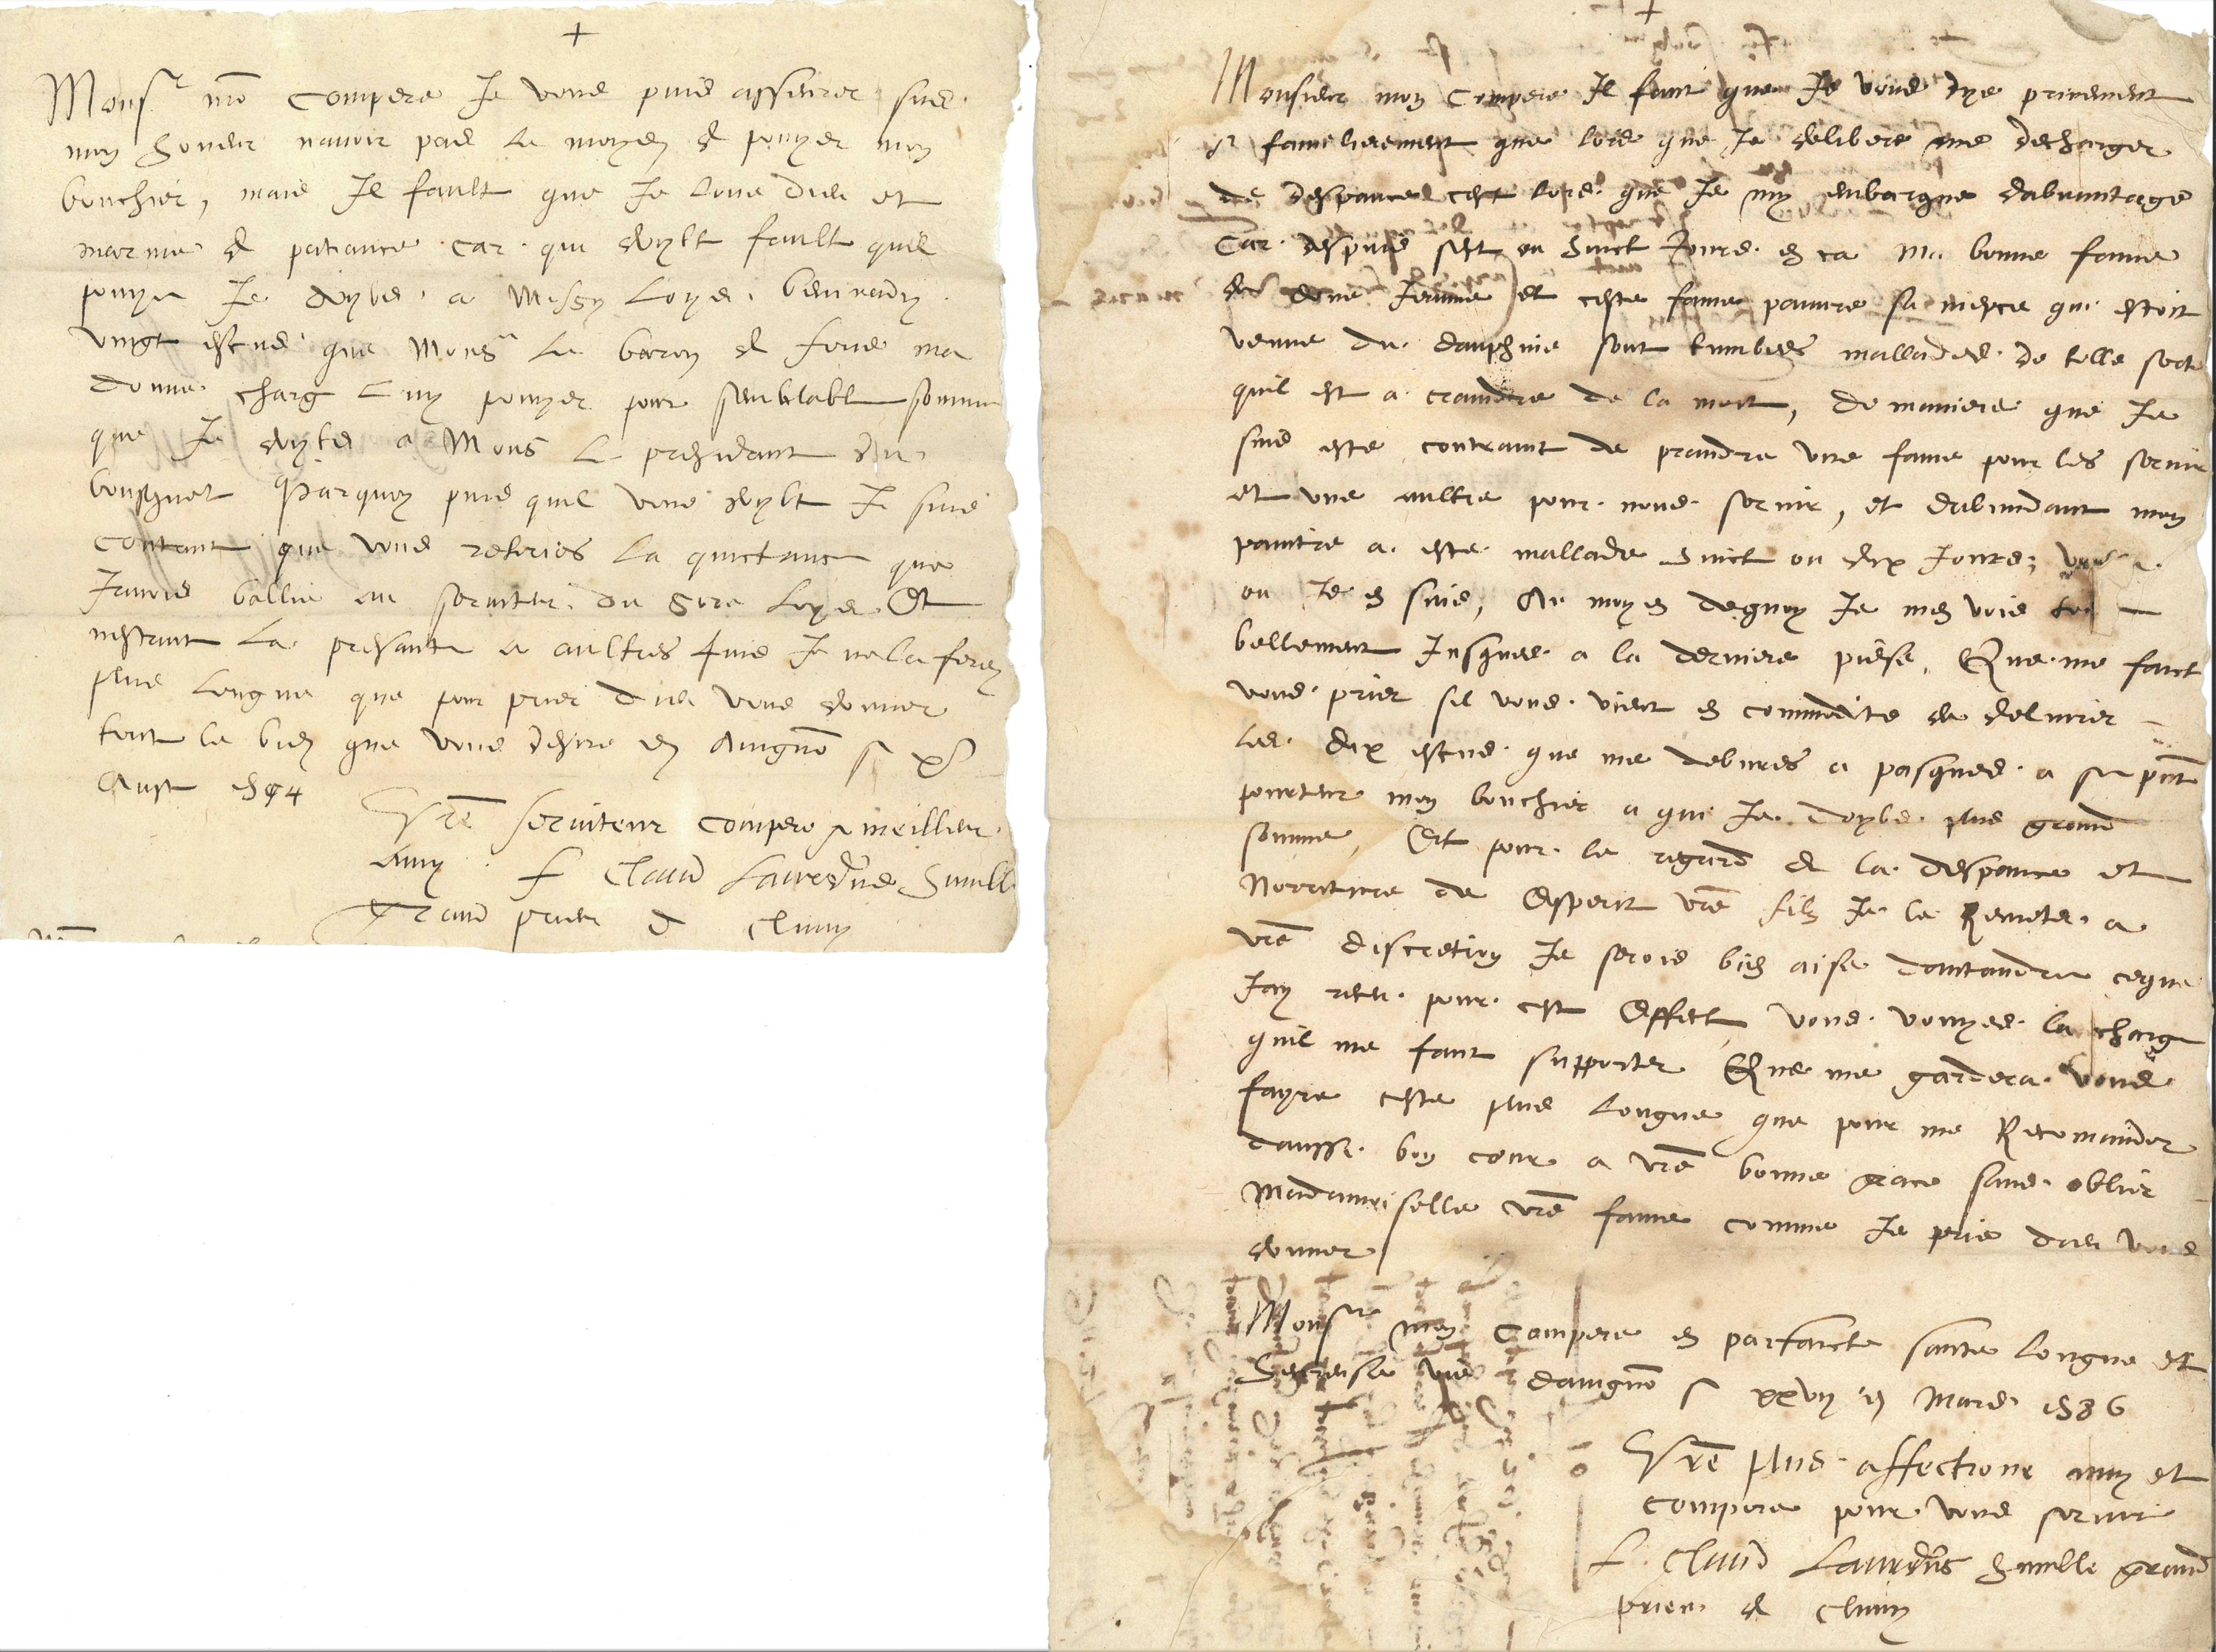 +
Monsr mõ compere Je vous puis asseurer sus
mon honeur navoir pas le moyen de payer mon
bouchier, mais Il fault que Je loue dieu et
marme de patiance car qui doybt fault quil
paye Je doybs a Messy Loys
vingt escus que Monsr le baron de fous ma
donne charg luy payer pour semblable somme
que Je doybs a Mons le presidant du
bousquet Parquoy puis quil vous doybt Je suis
contant que vous reteries la quictanse que
Javois ballie au serviteur du Sere Loys Et
nestant la presante a aultres fins Je ne la feray
plus longue que pour prier dieu vous donner
tout le bien que vous desire en Avignõ
Aust 1584
Vrẽ serviteur compere & meilleur
amy f Claud
Grand prieur de Cluny
+
Monsieur mon Compere Il faut que Je vous dye privement
et familierement que lors que Je delibere me decharger
de despance cest lors que Je my enbarque dabvantage
Car despuis sept ou huict Jours en ca ma bonne fame
de done Jeanne et ceste fame pauvre sa niepce qui estoit
venue du dauphine sont tumbees mallades de telle sorte
quil est a craindre de la mort, de maniere que Je
suis este contraint de prandre une fame pour les servir
et une aultre pour nous servir, et dabundant mon
paintre a este mallade huict ou dix Jours;
ou Je en suis, Au moyen dequoy Je men vois tou
bellement Jusques a la derniere piese, Que me faict
vous prier sil vous vient en commodite de delivrer
les dix escus que me debvres a pasques a se pñt
pourteur mon bouchier a qui Je doybs plus grand
somme, Et pour le regard de la despance et
Norriture de Esperit vrẽ filz Je le Remets a
vrẽ discretion Je serois bien aise dantandre ceque
Jay receu pour cest Effect, vous vouyes la charg
quil me faut supporter Que me gardera vous
fayre ceste plus longue que pour me Recomander
daussi bon coeur a vrẽ bonne grace sans oblier
Madamoiselle vrẽ fame comme Je prie dieu vous
donner
Monsieur mon Compere en parfaicte sante longue et
heureuse vie davignõ xxvij en Mars 1586
Vrẽ plus affectione amy et
compere pour vous servir
f. Claud grand
prieur de Cluny